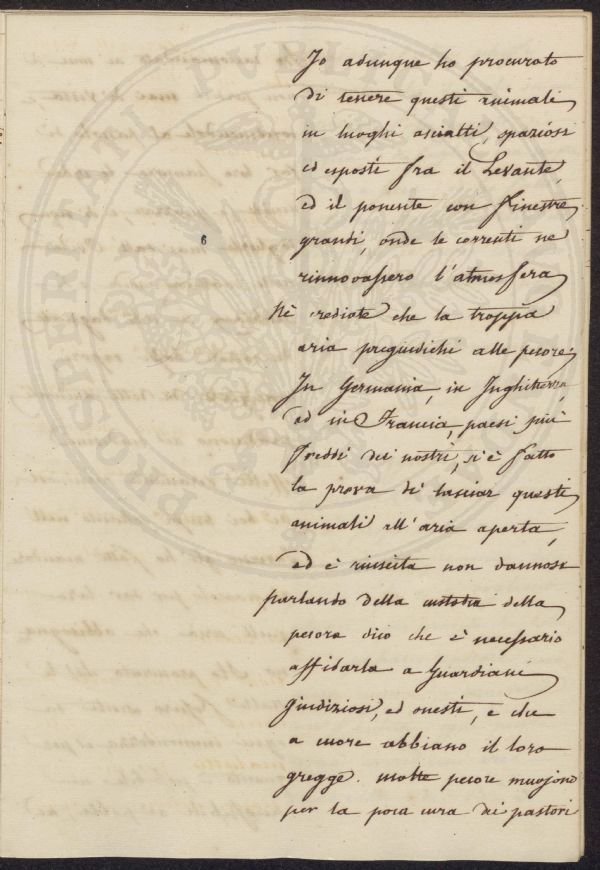 Io adunque ho procurato
di tenere questi animali
in luoghi asciutti, spaziosi
ed esposti fra il Levante,
ed il ponente con finestre
grandi, onde le correnti ne
rinnovassero l'atmosfera
Nè crediate che la troppa
aria pregiudichi alle pecore;
In Germania, in Inghilterra,
ed in Francia, paesi più
freddi dei nostri, s'è fatto
la prova di lasciar questi
animali all'aria aperta,
ed è riuscita non dannosa
parlando della custodia della
pecora dico che è necessario
affidarla a Guardiani
giudiziosi, ed onesti, e che
a cuore abbiano il loro
gregge. molte pecore muojono
per la poca cura dei pastori
6
PROSPERITATI PUBLICAE